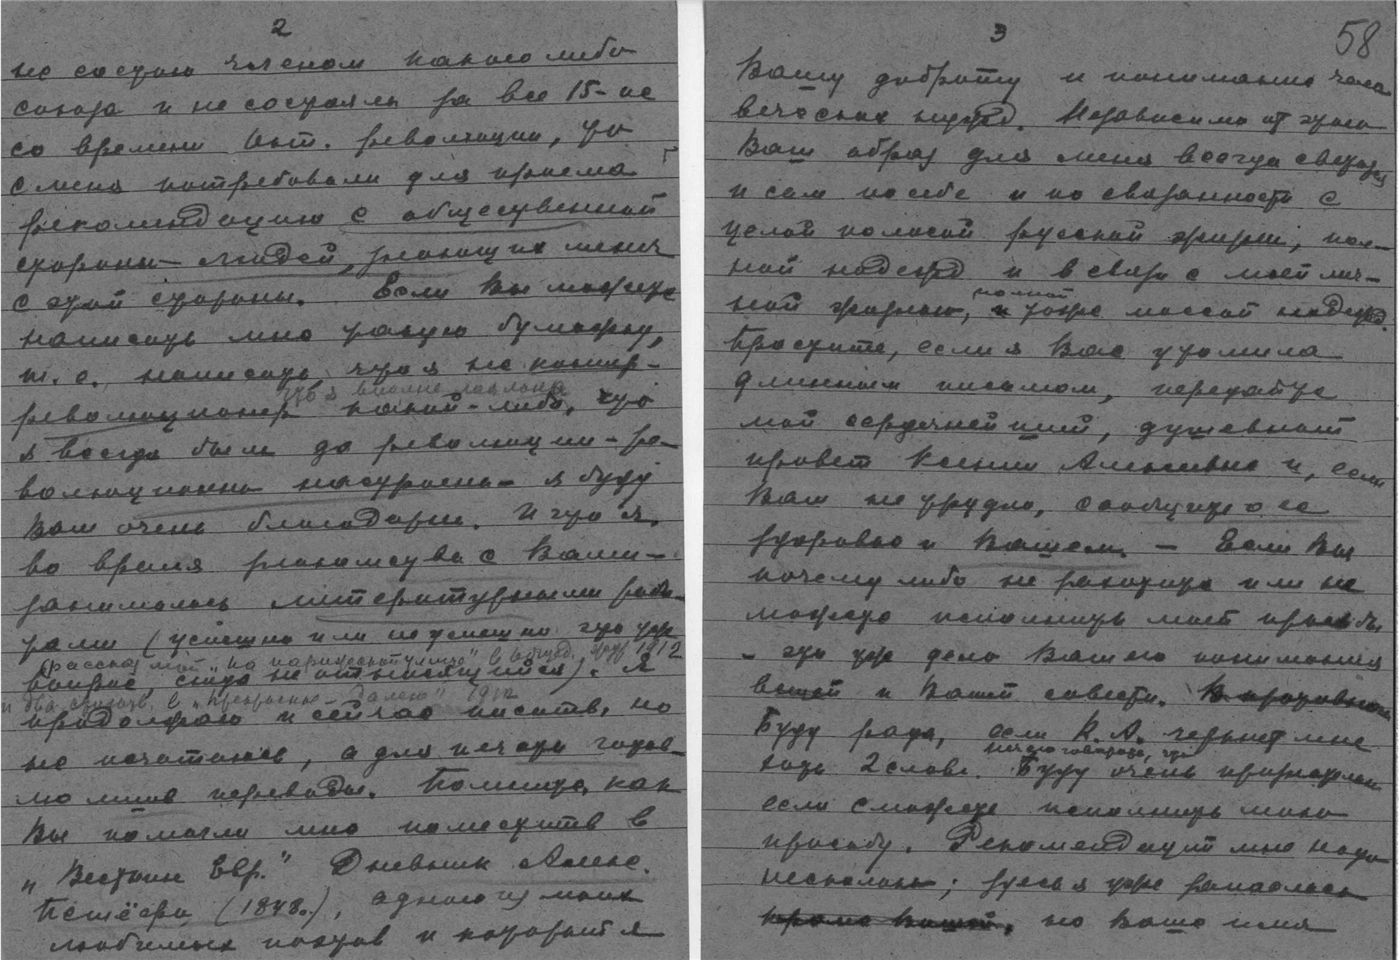 2
не состою членом какого либо
союза и не состояла за все 15-ие
со времени Окт. революции, то
с меня потребовали для приема
рекомендацию с общественной
стороны — людей, знающих меня
с этой стороны. Если Вы можете
написать мне такую бумажку,
т. е. написать что я не контр-
революционер какой-либо, что
что я вполне лояльна
я всегда была до революции — ре-
волюционно настроена — я буду
Вам очень благодарна. И что я,
во время знакомства с Вами —
занималась литературными рабо-
тами (успешно или неуспешно это уж
рассказ мой „На парижской улице" в 1912
вопрос, сюда не относящийся). Я
и два в „Прекрасное Далеко" 1912
продолжаю и сейчас писать, но
не печатаюсь, а для печати готов-
лю лишь переводы. Помните, как
Вы помогли мне поместить в
„Вестник Евр." Дневник Алекс.
(1848.), одного из моих
любимых поэтов и которой я
3
58
Вашу доброту и понимание
Независимо от этого
Ваш образ для меня всегда
и сам по себе и по связанности с
целой полосой русской жизни, пол-
ной надежд и в связи с моей лич-
ной жизнью, полной тоже массой надежд.
Простите, если я Вас утомила
длинным письмом, передайте
мой сердечнейший, душевный
привет Ксении Алексеевне и, если
Вам не трудно, сообщите о ее
здоровье и Вашем. — Если Вы
почему либо не захотите или не
можете исполнить моей просьбы
— это уж дело Вашего понимания
вещей и Вашей совести.
Буду рада, если К. А. черкнет мне
хоть 2 слова. Буду очень
если сможете исполнить мою
просьбу. Рекомендаций мне надо
несколько; здесь я уже запаслась
кроме Вашей, но Ваше имя